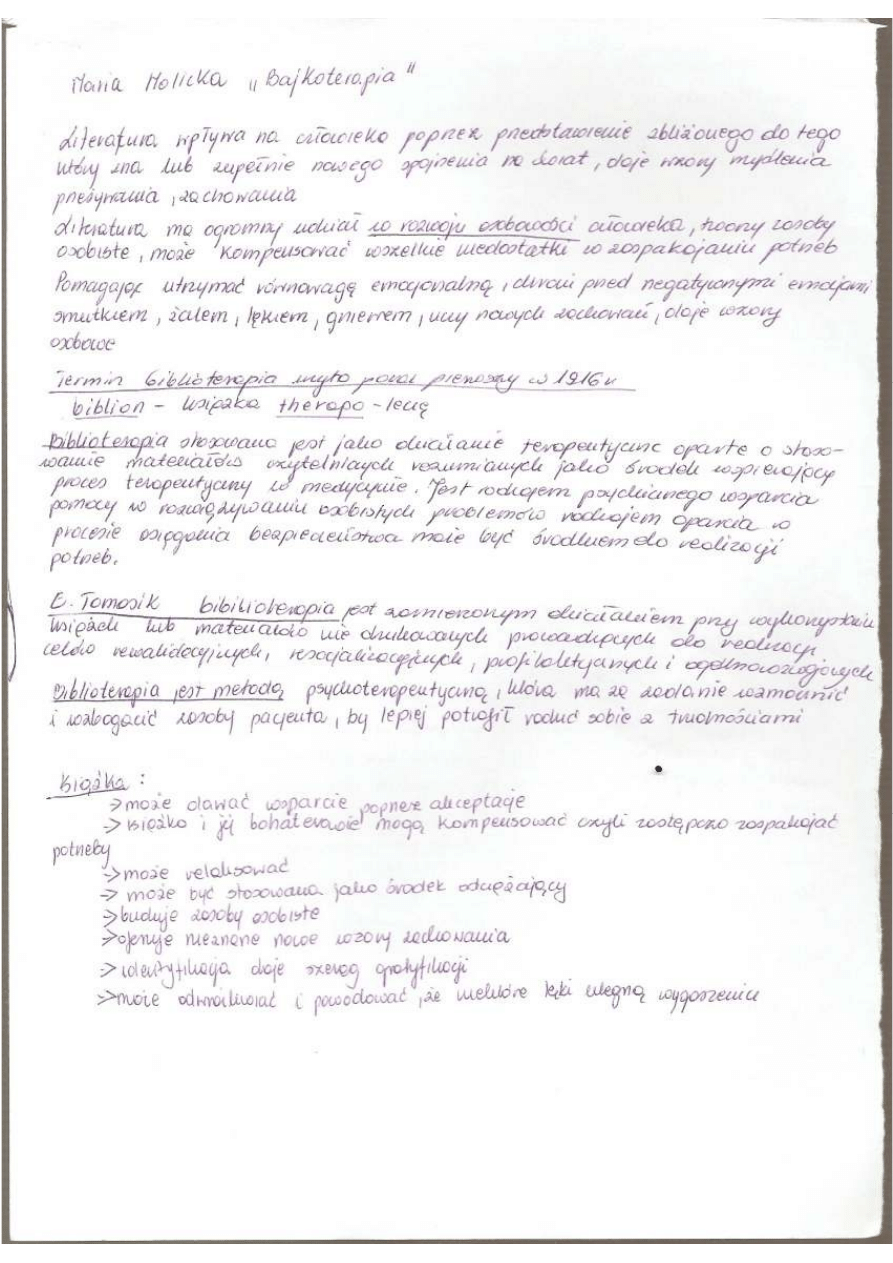 Maria Molicka „Bajkoterapia"
Literatura wpływa na człowieka poprzez przedstawienie zbliżonego do tego
który zna lub zupełnie nowego spojrzenia na świat, daje wzory myślenia
przeżywania, zachowania
Literatura ma ogromny udział w rozwoju osobowości człowieka, tworzy zasoby
osobiste, może kompensować wszelkie niedostatki w zaspakojaniu potrzeb
Pomagając utrzymać równowagę emocjonalną, chroni przed negatywnymi emocjami
smutkiem, żalem, lękiem, gniewem, uczy nowych zachowań, daje wzory
osobowe
Termin biblioterapia użyto poraz pierwszy w 1916r
biblion - książka therapo - leczę
Biblioterapia stosowana jest jako działanie terapeutyczne oparte o stoso-
wanie materiałów czytelniczych rozumianych jako środek wspierający
proces terapeutyczny w medycynie. Jest rodzajem psychicznego wsparcia
pomocy w rozwiązywaniu osobistych problemów rodzajem oparcia w
procesie osiągania bezpieczeństwa może być środkiem do realizacji
potrzeb.
E. Tomasik bibilioterapia jest zamierzonym działaniem przy wykorzystaniu
książek lub materiałów nie drukowanych prowadzących do realizacji
celów rewalidacyjnych, resocjalizacyjnych, profilaktycznych i ogólnorozwojowych
Biblioterapia jest metodą psychoterapeutyczną, która ma za zadanie wzmocnić
i wzbogacić zasoby pacjenta, by lepiej potrafił radzić sobie z trudnościami
Książka :
-> może dawać wsparcie poprzez akceptację
-> książka i jej bohaterowie mogą kompensować czyli zastępczo zaspakajać
potrzeby
-> może relaksować
-> może być stosowana jako środek odciążający
-> buduje zasoby osobiste
-> oferuje nieznane nowe wzory zachowania
-> identyfikacja daje szereg gratyfikacji
-> może odwrażliwiać i powodować, że niektóre lęki ulegną wygaszeniu